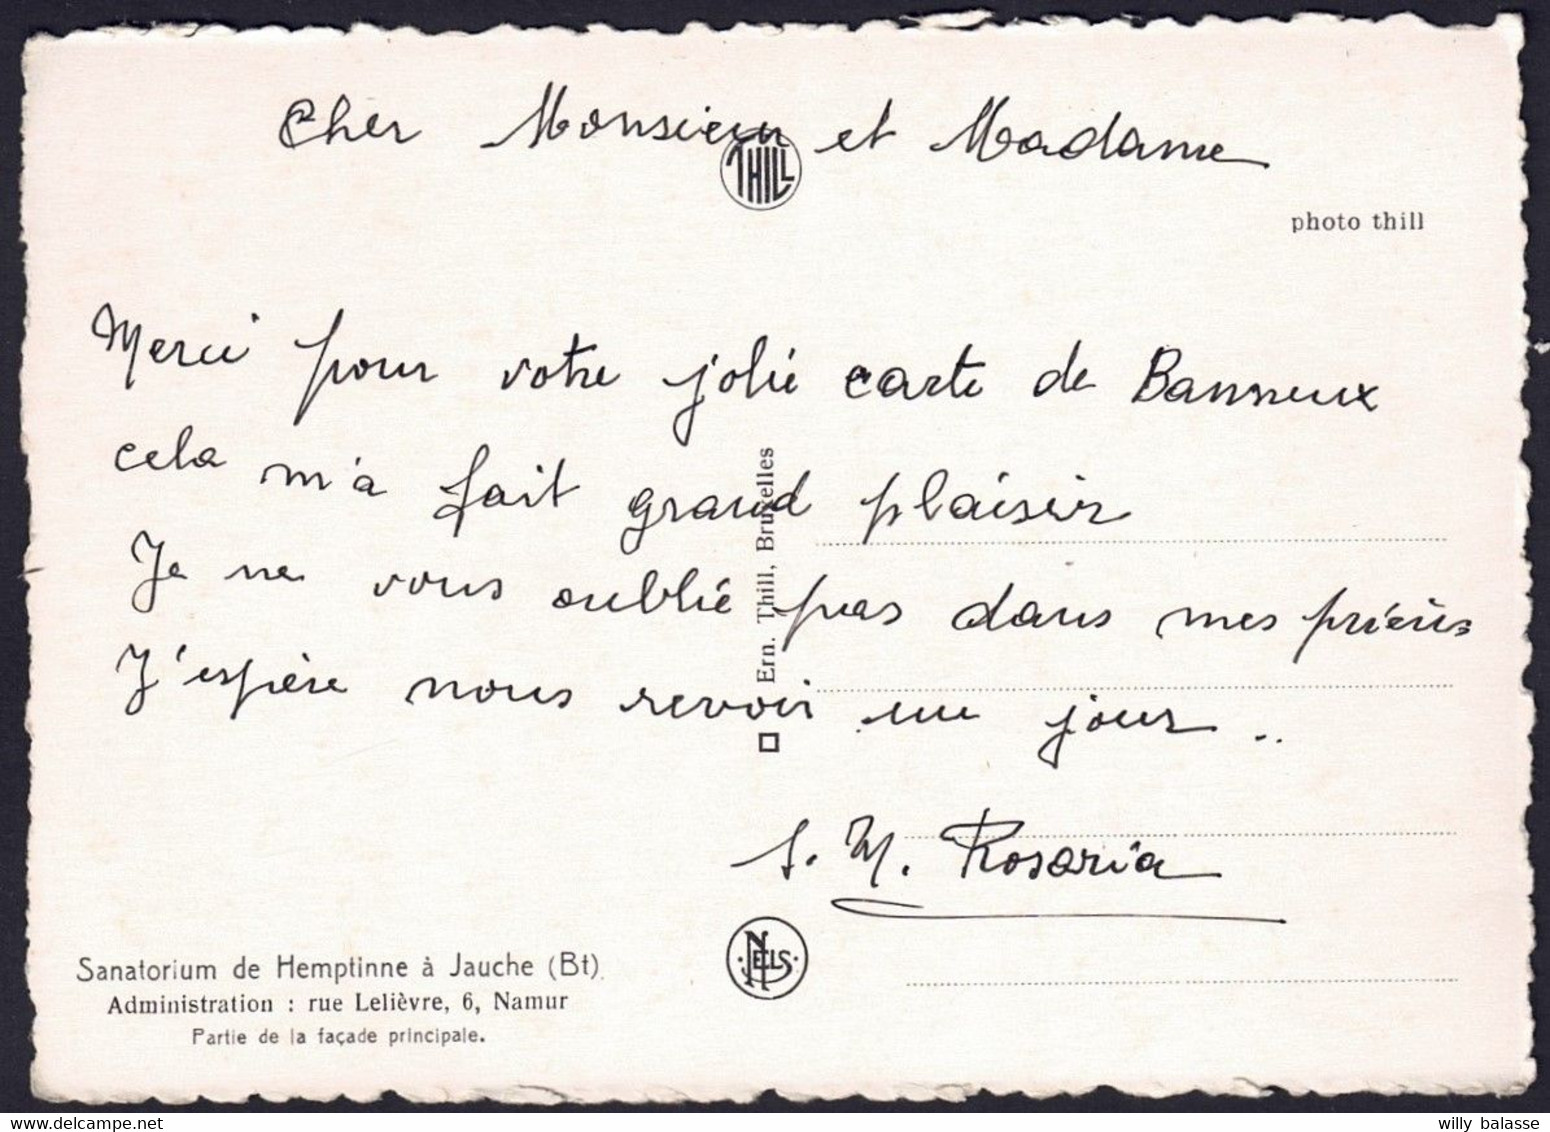 Cher Monsieur et Madame
THILL
photo thill
Merci pour votre jolie carte de Banneux
cela m'a fait grand plaisir
Je ne vous oublie pas dans mes prières
J'espère nous revoir un jour ..
Ern. Thill, Bruxelles
S. M. Rosaria
NELS
Sanatorium de Hemptinne à Jauche (Bt).
Administration : rue Lelièvre, 6, Namur
Partie de la façade principale.
willy balasse